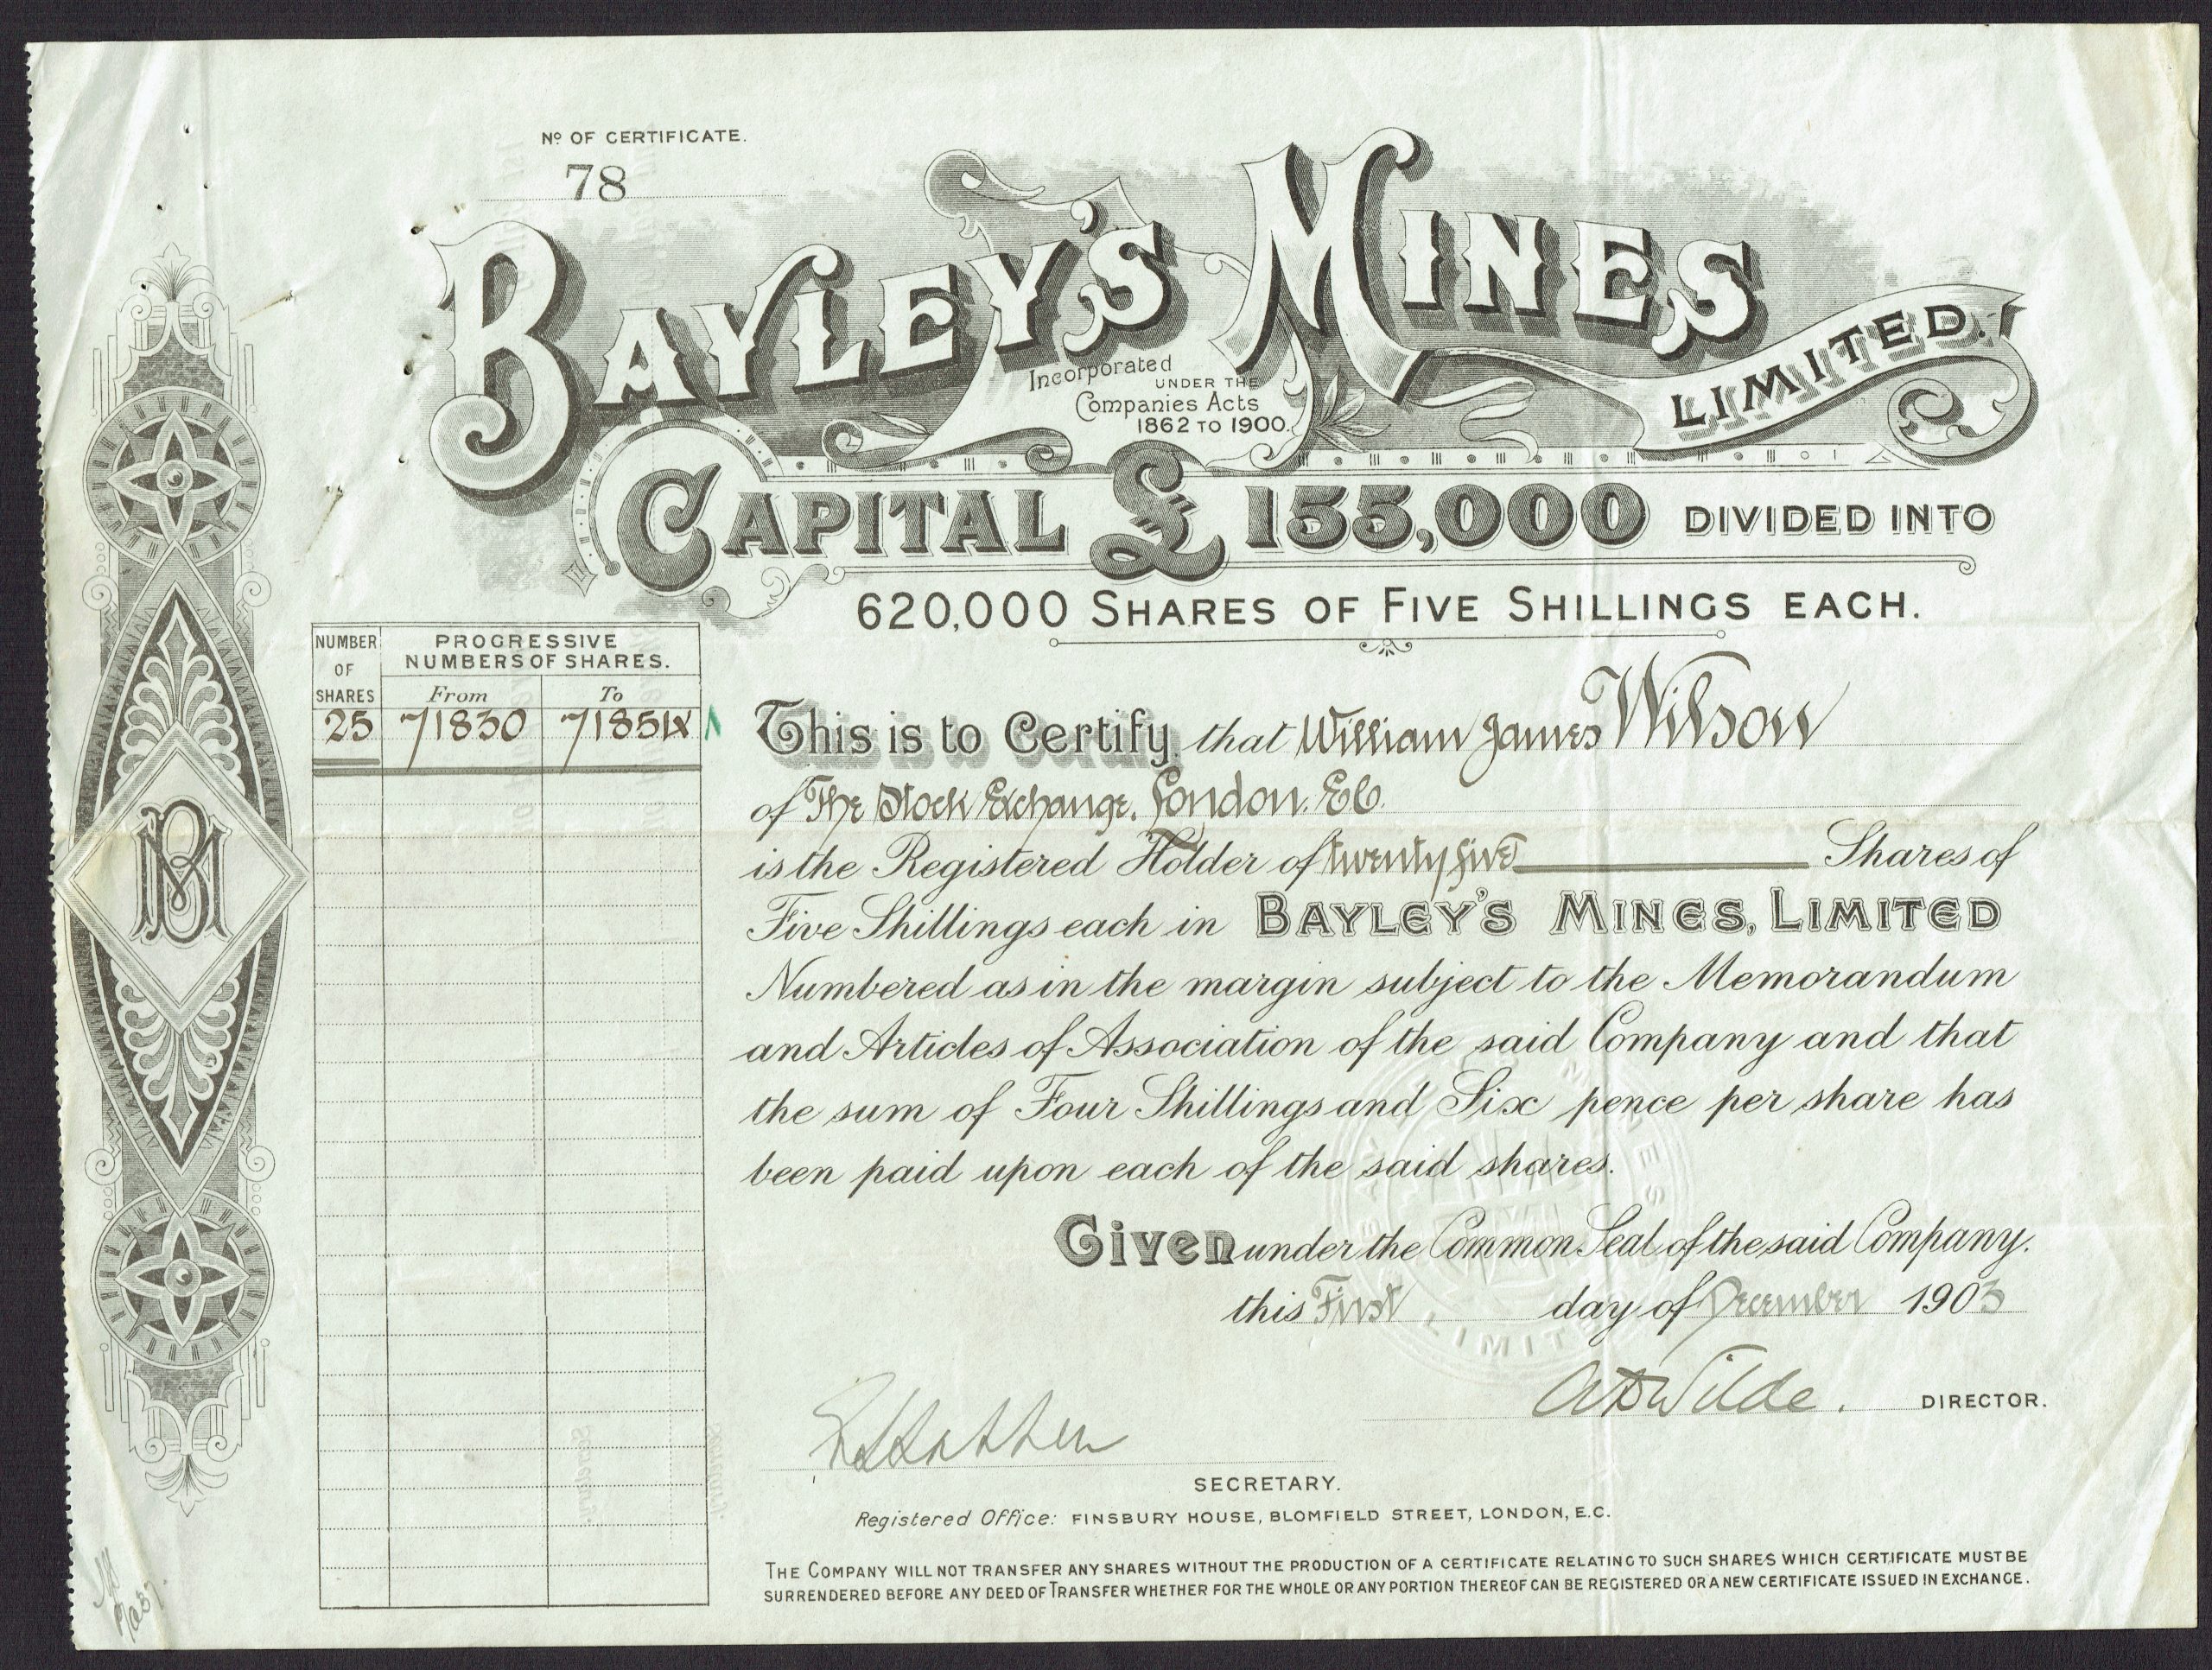 Nº OF CERTIFICATE.
78
BAYLEY'S MINES
LIMITED.
Incorporated
UNDER THE
Companies Acts
1862 TO 1900.
CAPITAL £155,000 DIVIDED INTO
620,000 SHARES OF FIVE SHILLINGS EACH.
NUMBER OF SHARES
PROGRESSIVE NUMBERS OF SHARES.
From To
25 71830
BM
This is to Certify, that William James Wilson
of The Stock Exchange, London. E.C.
is the Registered Holder of twenty five Shares of
Five Shillings each in BAYLEY'S MINES, LIMITED
Numbered as in the margin subject to the Memorandum
and Articles of Association of the said Company and that
the sum of Four Shillings and Six pence per share has
been paid upon each of the said shares.
Given under the Common Seal of the said Company.
this First day of December 1903
Wilde. DIRECTOR.
SECRETARY.
Registered Office: FINSBURY HOUSE, BLOMFIELD STREET, LONDON, E.C.
THE COMPANY WILL NOT TRANSFER ANY SHARES WITHOUT THE PRODUCTION OF A CERTIFICATE RELATING TO SUCH SHARES WHICH CERTIFICATE MUST BE
SURRENDERED BEFORE ANY DEED OF TRANSFER WHETHER FOR THE WHOLE OR ANY PORTION THEREOF CAN BE REGISTERED OR A NEW CERTIFICATE ISSUED IN EXCHANGE.